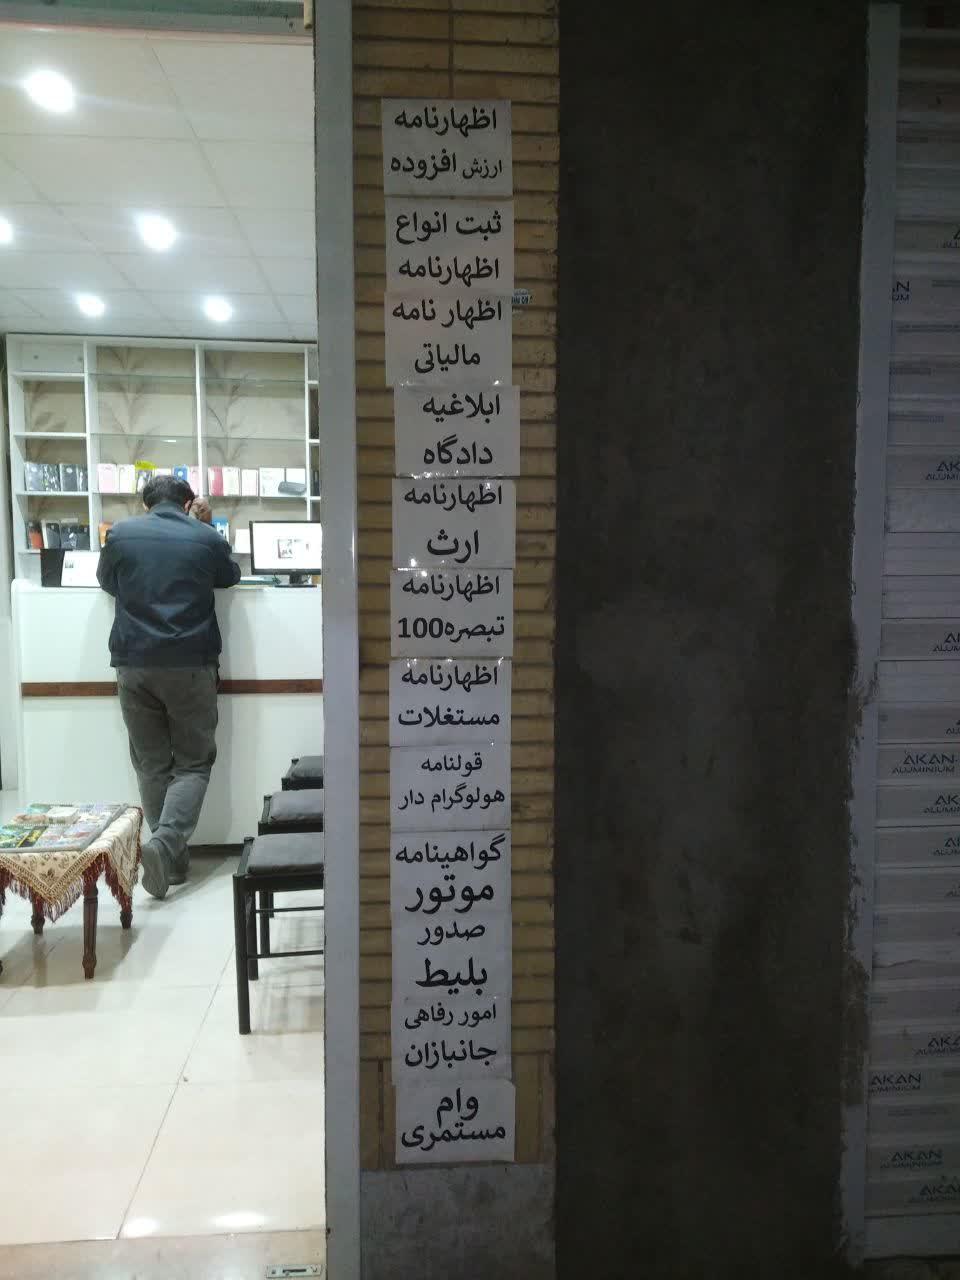 اظهارنامه
ارزش افزوده
ثبت انواع
اظهارنامه
اظهار نامه
مالیاتی
ابلاغیه
دادگاه
اظهارنامه
ارث
اظهارنامه
تبصره100
اظهارنامه
مستغلات
قولنامه
هولوگرام دار
گواهینامه
موتور
صدور
بلیط
امور رفاهی
جانبازان
وام
مستمری
AKAN
ALUMINIUM
AKAN
ALUMINIUM
AKAN
ALUMINIUM
AKAN